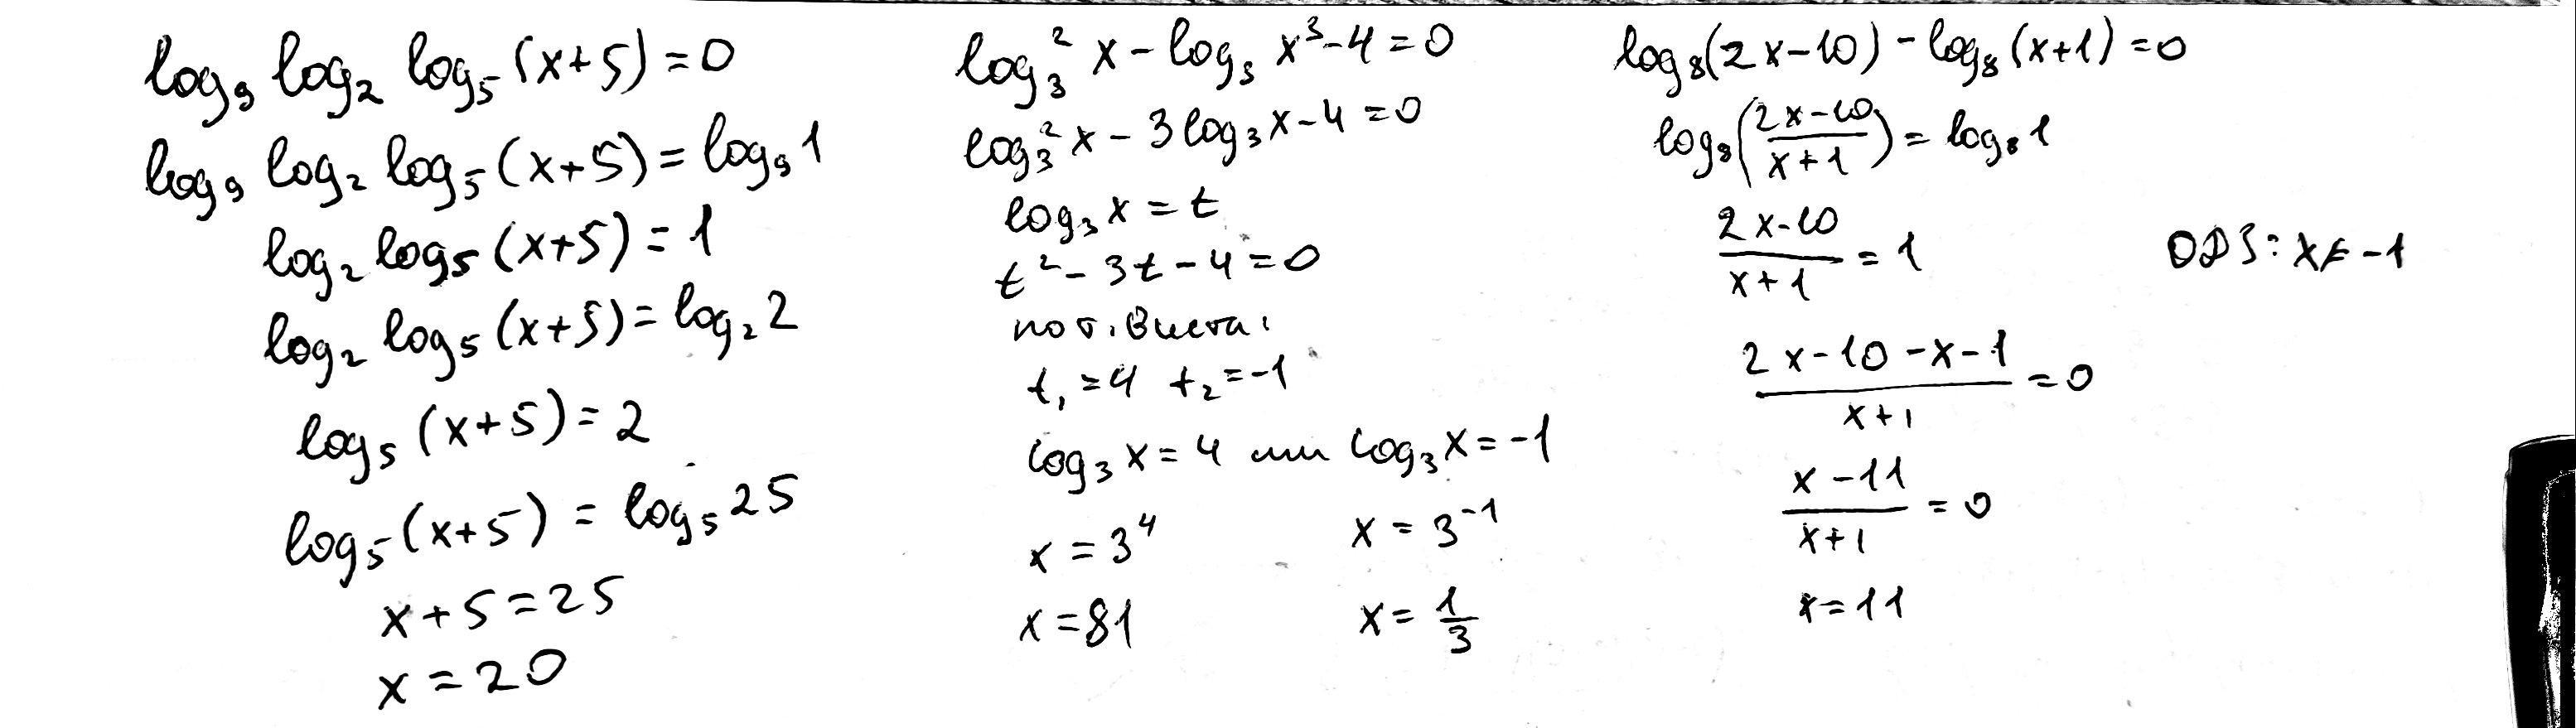 log₉ log₂ log₅ (x+5) = 0
log₉ log₂ log₅ (x+5) = log₉ 1
log₂ log₅ (x+5) = 1
log₂ log₅ (x+5) = log₂ 2
log₅ (x+5) = 2
log₅ (x+5) = log₅ 25
x+5 = 25
x = 20
log₃² x - log₃ x³ - 4 = 0
log₃² x - 3 log₃ x - 4 = 0
log₃ x = t
t² - 3t - 4 = 0
по т. Виета:
t₁ = 4 t₂ = -1
log₃ x = 4 или log₃ x = -1
x = 3⁴ x = 3⁻¹
x = 81 x = 1/3
log₈(2x-10) - log₈(x+1) = 0
log₈((2x-10)/(x+1)) = log₈ 1
(2x-10)/(x+1) = 1 ОДЗ: x ≠ -1
(2x-10-x-1)/(x+1) = 0
(x-11)/(x+1) = 0
x = 11